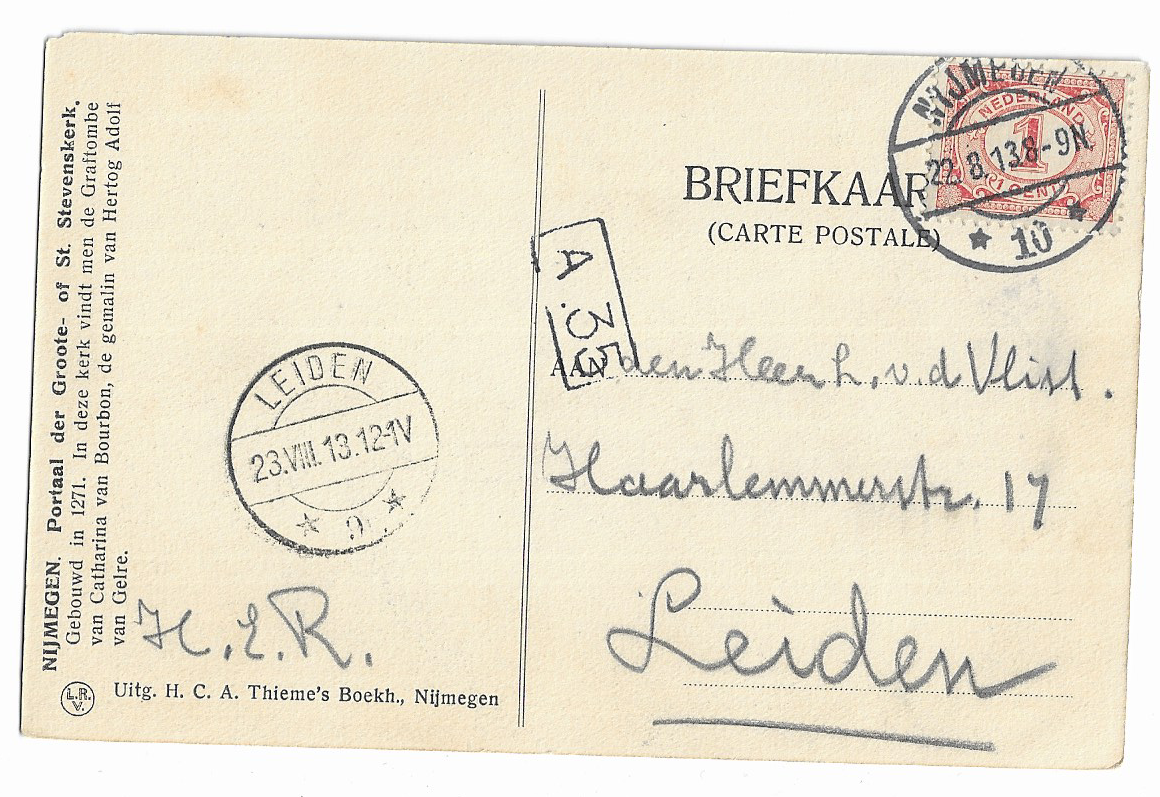 NIJMEGEN. Portaal der Groote- of St. Stevenskerk.
Gebouwd in 1271. In deze kerk vindt men de Graftombe
van Catharina van Bourbon, de gemalin van Hertog Adolf
van Gelre.
LEIDEN
23.VIII.13.12-1V
H.E.R.
L.R.
V.
Uitg. H. C. A. Thieme's Boekh., Nijmegen
NIJMEGEN
22. 8. 13 8-9N
10
NEDERLAND
1
1 CENT
BRIEFKAAR
(CARTE POSTALE)
A
35
AAN den Heer L. v. d Vlist.
Haarlemmerstr. 17
Leiden